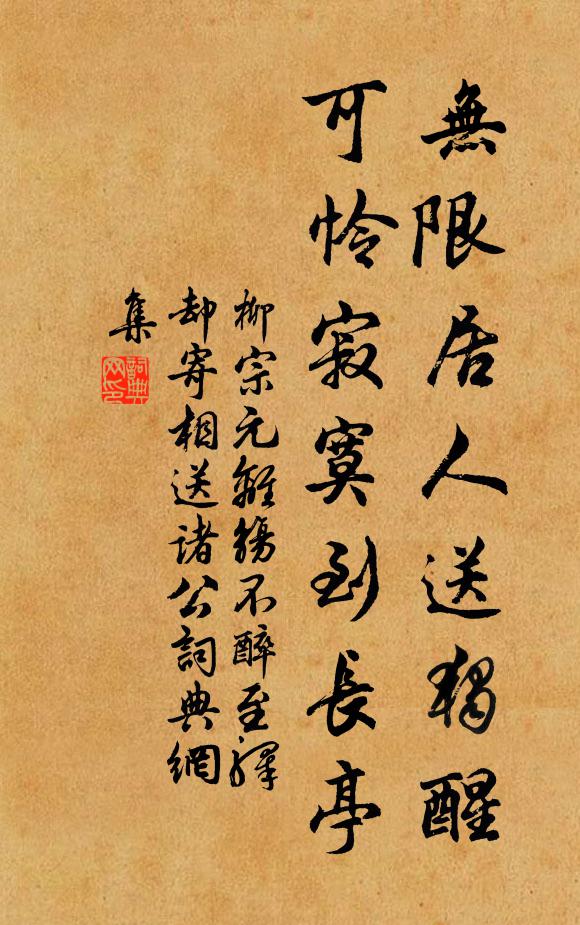 無限居人送獨醒
可憐寂寞到長亭
柳宗元離觴不醉至驛
却寄相送諸公詞典網
集
詞典
网印